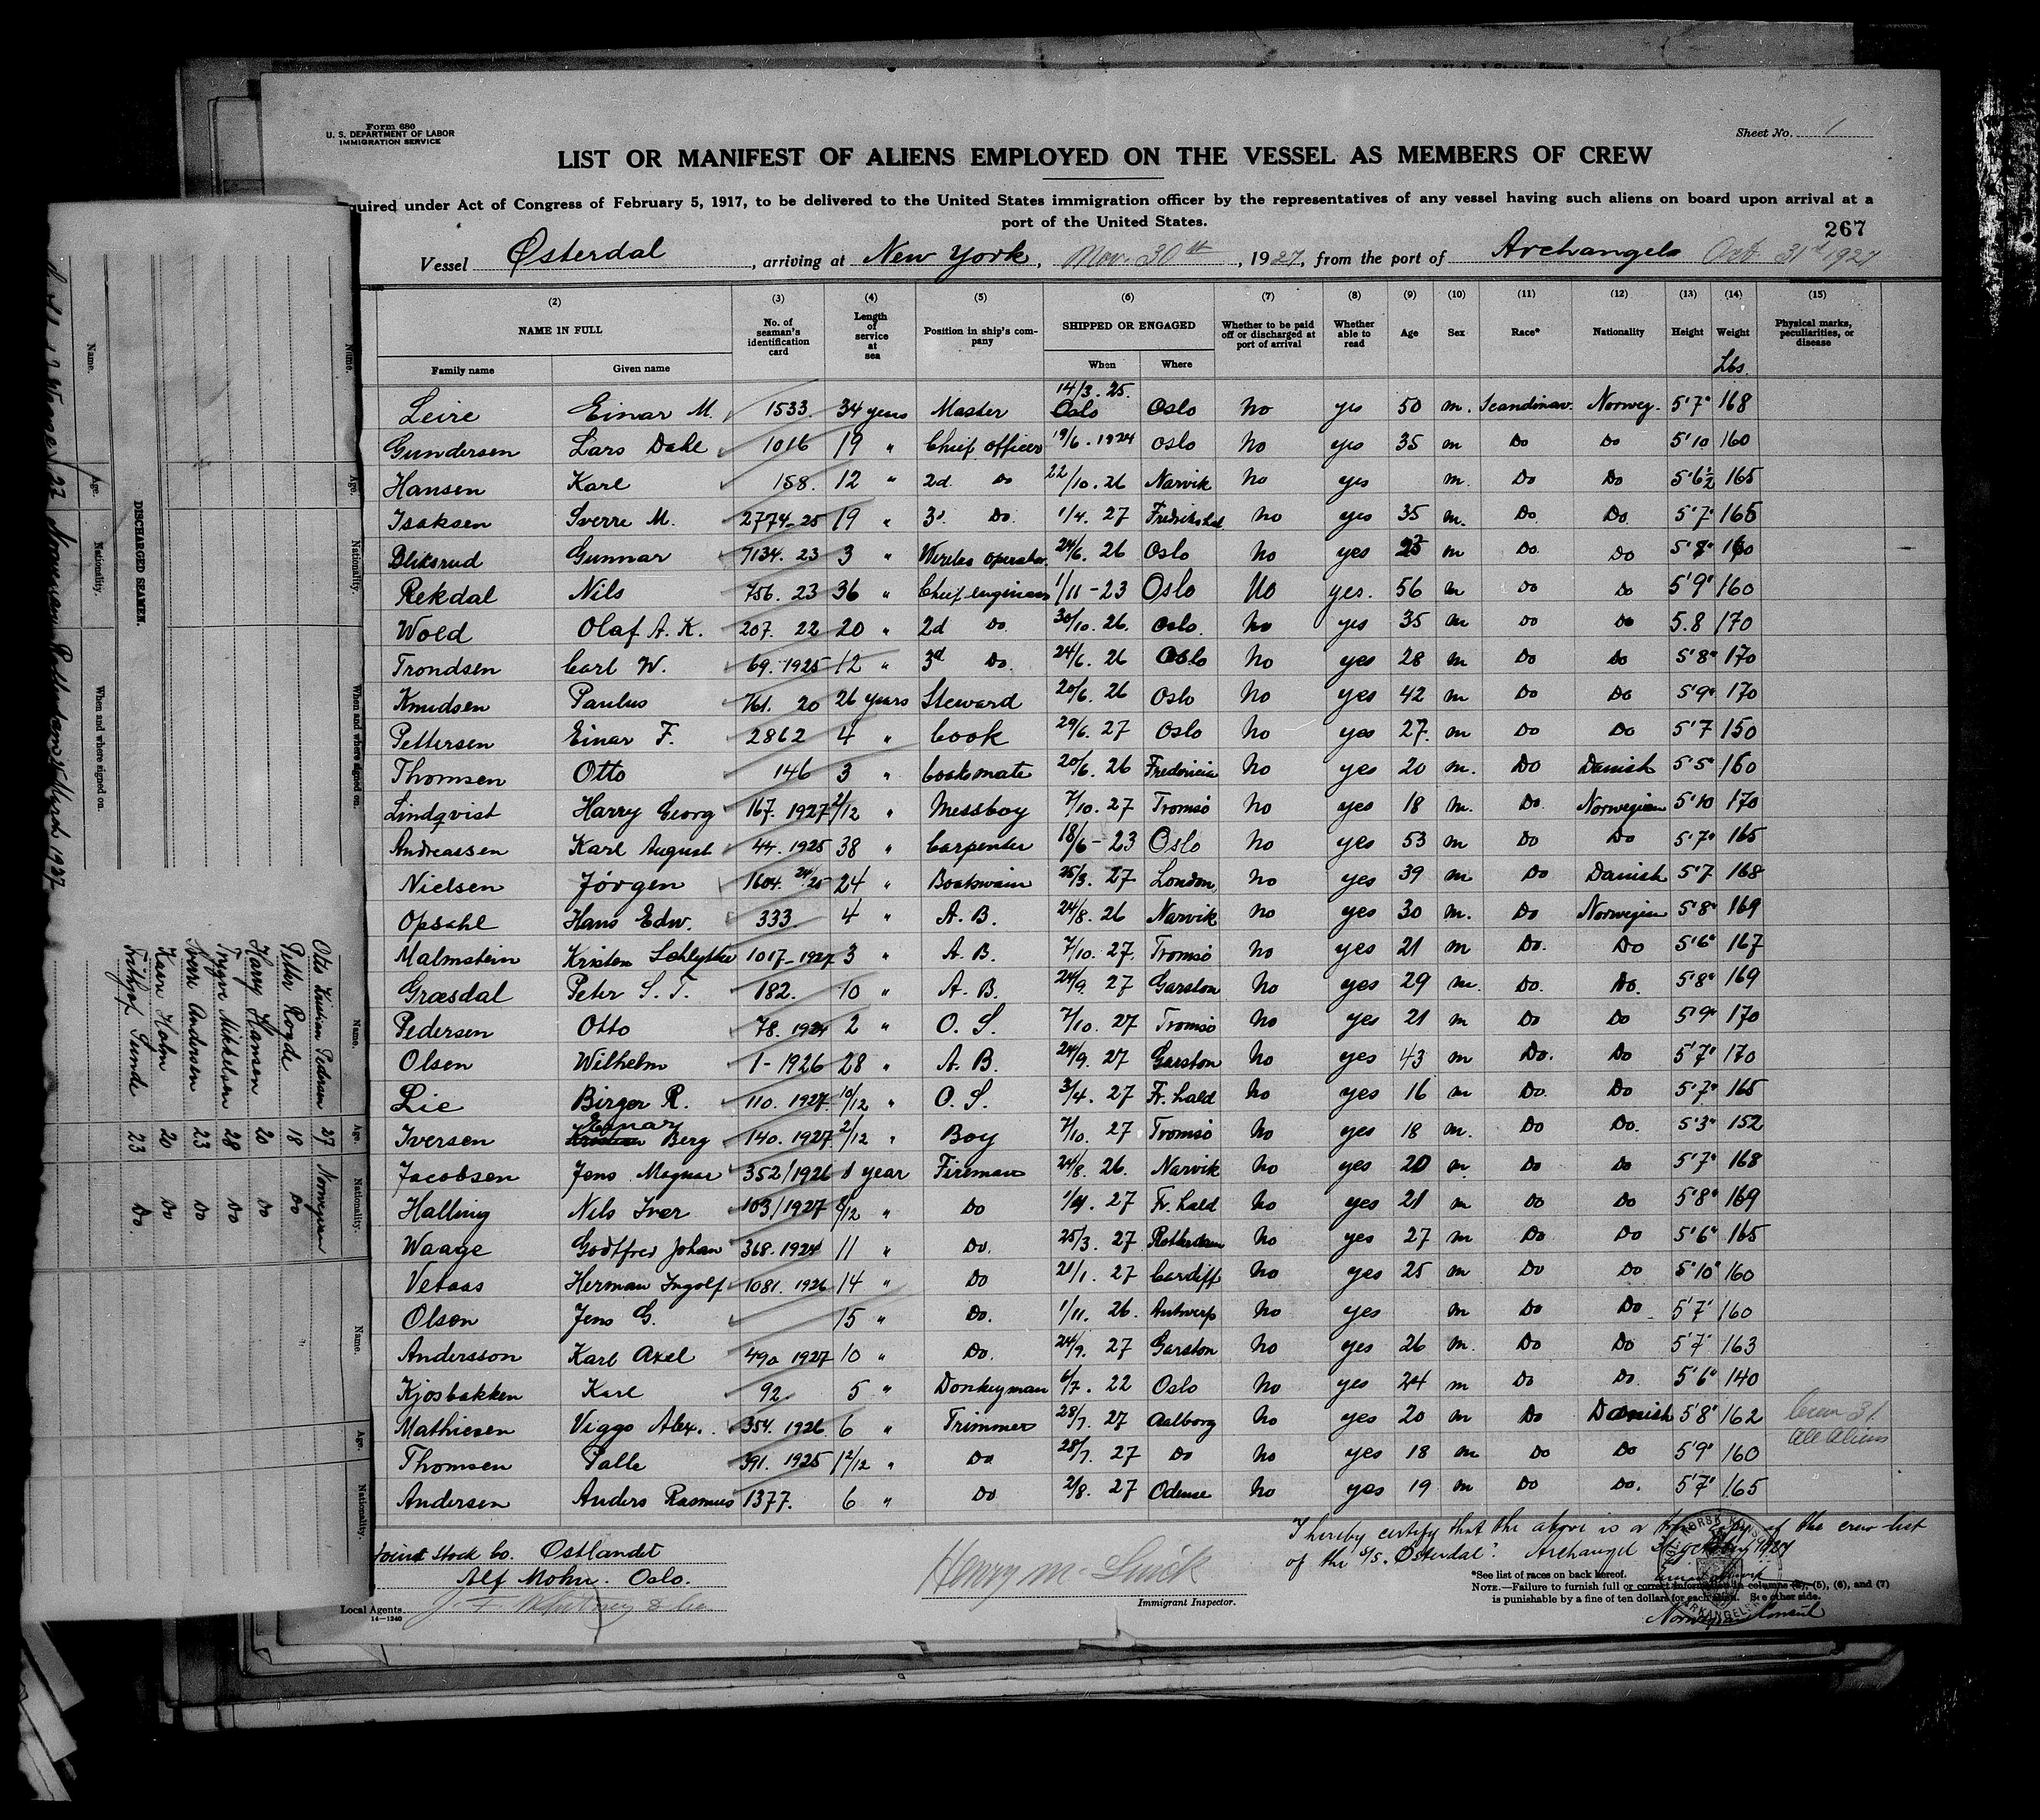 Form 680
U. S. DEPARTMENT OF LABOR
IMMIGRATION SERVICE
Sheet No. 1
LIST OR MANIFEST OF ALIENS EMPLOYED ON THE VESSEL AS MEMBERS OF CREW
quired under Act of Congress of February 5, 1917, to be delivered to the United States immigration officer by the representatives of any vessel having such aliens on board upon arrival at a
port of the United States.
267
Vessel Østerdal, arriving at New York, Nov. 30th, 1927, from the port of Archangels Oct 31st 1927
(2) (3) (4) (5) (6) (7) (8) (9) (10) (11) (12) (13) (14) (15)
NAME IN FULL No. of seaman's identification card Length of service at sea Position in ship's company SHIPPED OR ENGAGED Whether to be paid off or discharged at port of arrival Whether able to read Age Sex Race* Nationality Height Weight Physical marks, peculiarities, or disease
Family name Given name When Where Lbs.
Leire Einar M. 1533. 34 years Master 14/3. 25. Oslo Oslo No yes 50 m. Scandinav. Norweg. 5'7" 168
Gundersen Lars Dahl 1016 19 " Chief officer 19/6. 1924 Oslo No yes 35 m Do Do 5'10 160
Hansen Karl 158. 12 " 2d. Do 22/10. 26 Narvik No yes m. Do Do 5'6½ 165
Isaksen Sverre M. 2774-25 19 " 3d. Do. 1/4. 27 No yes 35 m. Do. Do. 5'7" 165
Bliksrud Gunnar 7134. 23 3 " Wireles operator 24/6. 26 Oslo No yes m Do. Do
Rekdal Nils 756. 23 36 " Chief engineer 1/11-23 Oslo No yes. 56 m Do Do 5'9" 160
Wold Olaf A. K. 207. 22 20 " 2d Do. 30/10. 26. Oslo. No yes 35 m Do Do 5.8 170
Trondsen Carl W. 69. 1925 12 " 3d Do. 24/6. 26 Oslo No yes 28 m Do Do 5'8" 170
Knudsen Paulus 761. 20 26 years Steward 20/6. 26 Oslo No yes 42 m Do Do 5'9" 170
Pettersen Einar F. 2862 4 " Cook 29/6. 27 Oslo No yes 27. m Do Do 5'7 150
Thomsen Otto 146 3 " Cooksmate 20/6. 26 Fredericia No yes 20 m. Do Danish 5'5" 160
Lindqvist Harry Georg 167. 1927 2/12 " Messboy 7/10. 27 Tromsö No yes 18 m. Do. Norwegian 5'10 170
Andreassen Karl August 44. 1925 38 " Carpenter 18/6-23 Oslo No yes 53 m Do Do 5'7" 165
Nielsen Jörgen 1604. 24/25 24 " Boatswain 25/3. 27 London, No yes 39 m Do Danish 5'7 168
Opsahl Hans Edw. 333. 4 " A. B. 24/8. 26 Narvik No yes 30 m. Do Norwegian 5'8" 169
Malmstein Kristen 1017-1927 3 " A. B. 7/10. 27. Tromsö No yes 21 m Do. Do 5'6" 167
Græsdal Peter S. T. 182. 10 " A. B. 24/9. 27 Garston No yes 29 m. Do. Do. 5'8" 169
Pedersen Otto 78. 1924 2 " O. S. 7/10. 27 Tromsö No yes 21 m Do Do 5'9" 170
Olsen Wilhelm 1-1926 28 " A. B. 24/9. 27 Garston No yes 43 m Do. Do 5'7" 170
Lie Birger R. 110. 1927. 10/12 " O. S. 3/4. 27 Fr. hald No yes 16 m Do. Do. 5'7" 165
Iversen Einar Berg 140. 1927 2/12 " Boy 7/10. 27 Tromsö No yes 18 m. Do Do. 5'3" 152
Jacobsen Jens Magnar 352/1926 1 year Fireman 24/8. 26. Narvik No yes 20 m. Do Do 5'7" 168
Halling Nils Iver 103/1927 8/12 " Do 27 Fr. hald No yes 21 m Do Do 5'8" 169
Waage Godtfred Johan 368. 1924 11 " Do. 25/3. 27 Rotterdam No yes 27 m Do Do 5'6" 165
Vetaas Herman Ingolf 1081. 1926 14 " Do 21/1. 27 Cardiff No yes 25 m Do Do 5'10" 160
Olsen Jens G. 15 " Do. 1/11. 26. Antwerp No yes m Do Do 5'7" 160
Andersson Karl Axel 490 1927 10 " Do. 24/9. 27 Garston No yes 26 m. Do Do 5'7" 163
Kjosbakken Karl 92 5 " Donkeyman 6/7. 22 Oslo No yes 24 m Do Do. 5'6" 140
Mathiesen Viggo Alex. 354. 1926 6 " Trimmer 28/7. 27 Aalborg No yes 20 m Do Danish 5'8" 162 Crew 31
All Aliens
Thomsen Palle 391. 1925 12/12 " Do 28/7. 27 Do No yes 18 m Do Do 5'9" 160
Andersen Anders Rasmus 1377. 6 " Do 2/8. 27 Odense No yes 19 m Do Do. 5'7" 165
Joint Stock Co. Ostlandet
Alf Mohn. Oslo.
Local Agents
14-1240
Henry M.
Immigrant Inspector.
I hereby certify that the above is a true copy of the crew list
of the s/s. Østerdal". Archangel 31 october 1927
*See list of races on back hereof.
NOTE.—Failure to furnish full or correct information in columns (5), (6), and (7)
is punishable by a fine of ten dollars for each alien. See other side.
Norwegian Consul
DISCHARGED SEAMEN.
Name. Age. Nationality. When and where signed on.
27 Norwegian Rotterdam 25 March 1927
Name. Age. Nationality.
Otto Kristian Pedersen 27 Norwegian
Petter Rogde 18 Do
Harry Hansen 20 Do
Trygve Mikkelsen 28 Do
Sverre Andersen 23 Do
Kaare Holm 20 Do
Fridtjof Sunde 23 Do.